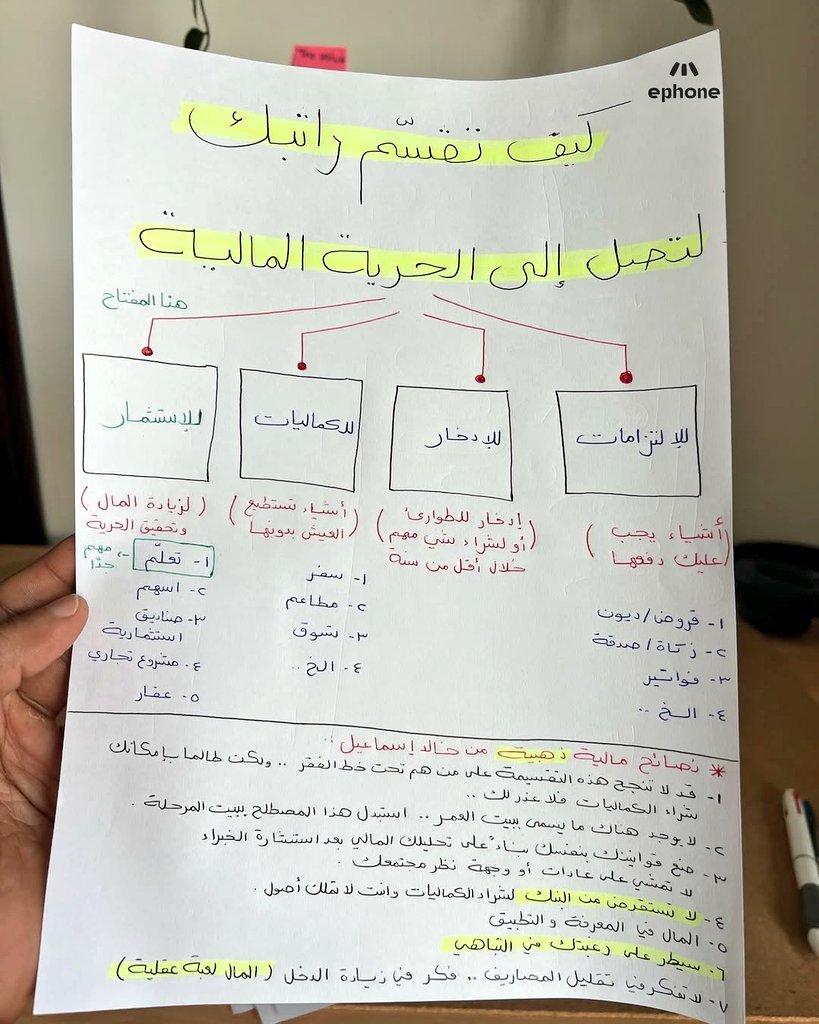 ephone
كيف تقسّم راتبك
لتصل إلى الحرية المالية
هنا المفتاح
للإلتزامات
للإدخار
للكماليات
للإستثمار
(أشياء يجب
عليك دفعها)
١- قروض/ديون
٢- زكاة/صدقة
٣- فواتير
٤- الخ ..
(إدخار للطوارئ
أو لشراء شي مهم
خلال أقل من سنة)
(أشياء تستطيع
العيش بدونها)
١- سفر
٢- مطاعم
٣- تسوق
٤- الخ ..
(لزيادة المال
وتحقيق الحرية)
١- تعلّم
مهم
جدًا
٢- اسهم
٣- صناديق
استثمارية
٤- مشروع تجاري
٥- عقار
* نصائح مالية ذهبية من خالد إسماعيل :
١- قد لا تنجح هذه التقسيمة على من هم تحت خط الفقر .. ولكن طالما بإمكانك
شراء الكماليات فلا عذر لك ..
٢- لا يوجد هناك ما يسمى ببيت العمر .. استبدل هذا المصطلح ببيت المرحلة .
٣- صنع قوانينك بنفسك بناءً على تحليلك المالي بعد استشارة الخبراء
لا تمشي على عادات أو وجهة نظر مجتمعك .
٤- لا تستقرض من البنك لشراء الكماليات وانت لا تملك أصول .
٥- المال في المعرفة و التطبيق
٦- سيطر على رغبتك في التباهي
٧- لا تفكر في تقليل المصاريف .. فكر في زيادة الدخل (المال لعبة عقلية)